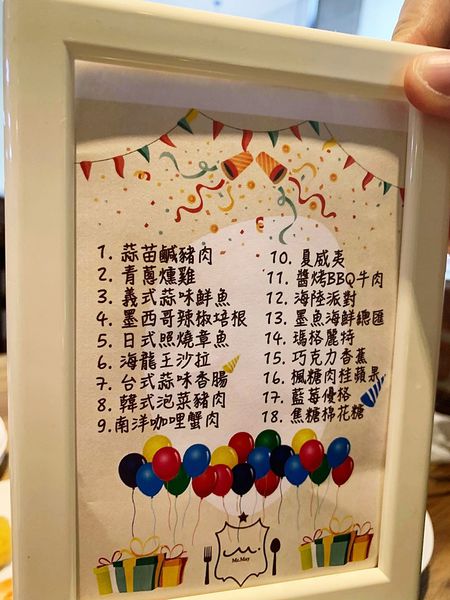 1. 蒜苗鹹豬肉
2. 青蔥燻雞
3. 義式蒜味鮮魚
4. 墨西哥辣椒培根
5. 日式照燒章魚
6. 海龍王沙拉
7. 台式蒜味香腸
8. 韓式泡菜豬肉
9. 南洋咖哩蟹肉
10. 夏威夷
11. 醬烤BBQ牛肉
12. 海陸派對
13. 墨魚海鮮總匯
14. 瑪格麗特
15. 巧克力香蕉
16. 楓糖肉桂蘋果
17. 藍莓優格
18. 焦糖棉花糖
Mr.May